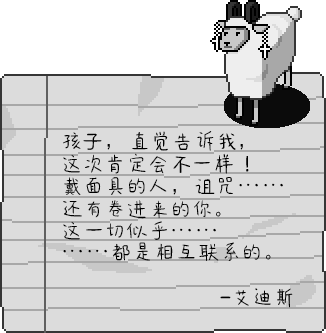 孩子，直觉告诉我，
这次肯定会不一样！
戴面具的人，诅咒……
还有卷进来的你。
这一切似乎……
……都是相互联系的。
-艾迪斯